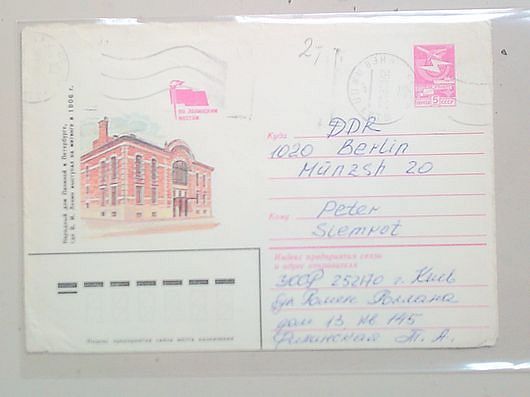 ПО ЛЕНИНСКИМ
МЕСТАМ
Народный дом Паниной в Петербурге,
где В. И. Ленин выступал на митинге в 1906 г.
ПОЧТА СССР
5
Куда
DDR
1020 Berlin
Münzsh 20
Кому
Peter
Siemrot
Индекс предприятия связи
и адрес отправителя
252170 г. Київ
бул Ромен Роллана
дом 13, кв 145
Т. А.
Индекс предприятия связи места назначения